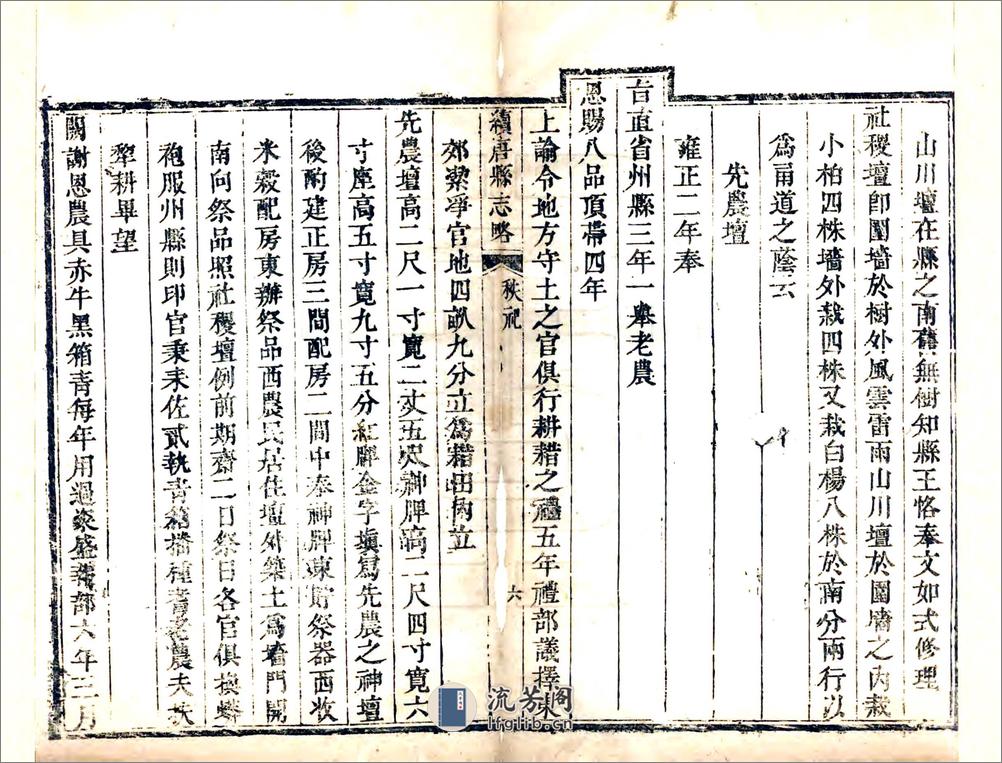 山川壇在縣之南舊無樹知縣王恪奉文如式修理
社稷壇卽圍墻於樹外風雲雷雨山川壇於圍墻之內栽
小柏四株墻外栽四株又栽白楊八株於南分兩行以
爲甬道之蔭云
先農壇
雍正二年奉
旨直省州縣三年一舉老農
恩賜八品頂帶四年
上諭令地方守土之官俱行耕耤之禮五年禮部議擇東
續唐縣志略
秩祀
六
郊潔淨官地四畝九分立爲耤田內立
先農壇高二尺一寸寬二丈五尺神牌高二尺四寸寬六
寸座高五寸寬九寸五分紅牌金字塡寫先農之神壇
後酌建正房三間配房二間中奉神牌東貯祭器西收
米穀配房東辦祭品西農民居住壇外築土爲墻門開
南向祭品照社稷壇例前期齋二日祭日各官俱換蟒
袍服州縣則印官秉耒佐貳執青箱播種耆老農夫扶
犂耕畢望
闕謝恩農具赤牛黑箱青每年用過粢盛報部六年三月
流芳阁
lfglib.cn